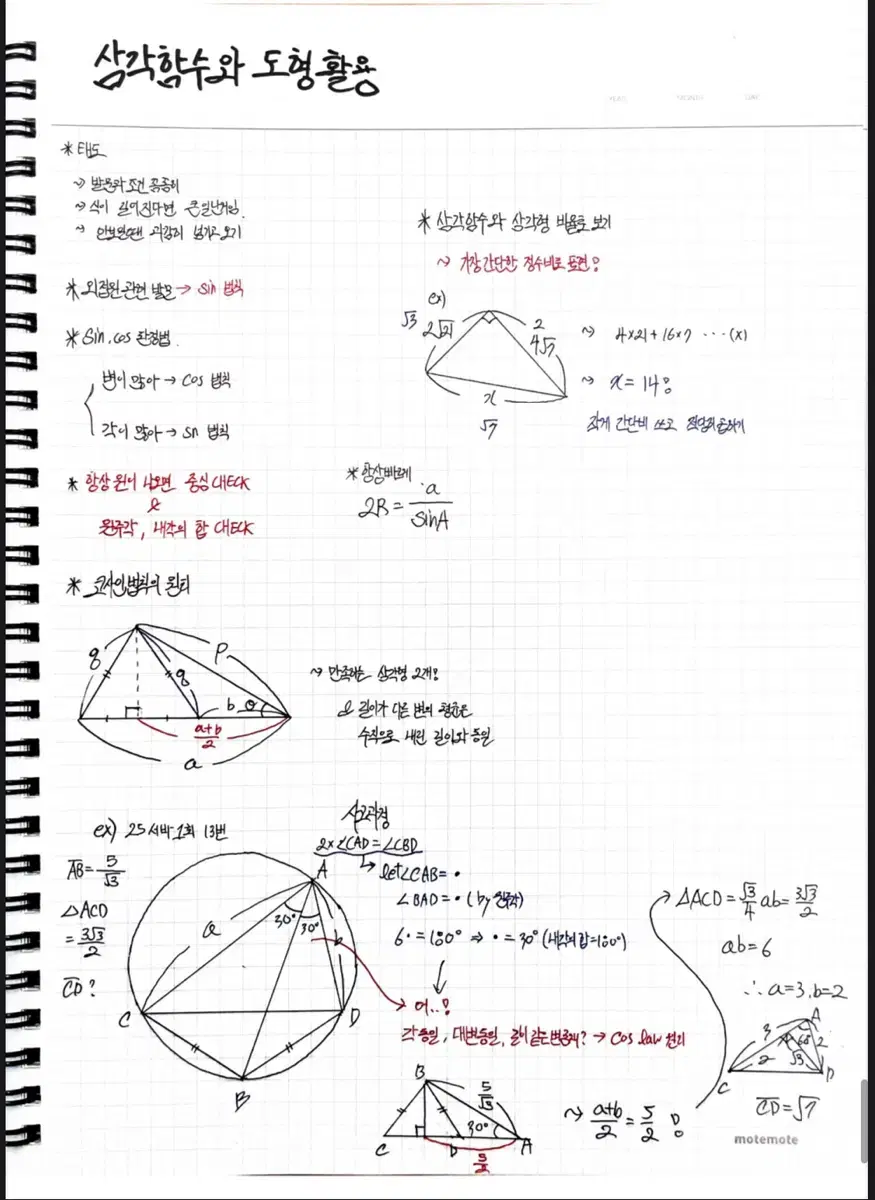 삼각함수와 도형 활용
YEAR MONTH DAY
* 태도
~> 발문와 조건 꼼꼼히
~> 식이 길어진다면 큰일난거임.
~> 안보일땐 과감히 넘기고 보기
* 외접원 관련 발문 → sin 법칙
* Sin, cos 판정법.
변이 많아 → cos 법칙
각이 많아 → sin 법칙
* 항상 원이 나오면 중심 CHECK
&
원주각, 내각의 합 CHECK
* 삼각함수와 삼각형 비율로 보기
~> 가장 간단한 정수비로 표현!
ex)
√3 2√21
2 4√7
x
√7
~> 4×21+16×7 ...(x)
~> x = 14!
작게 간단비 쓰고
* 항상 빠르게
2R = a / sinA
* 코사인법칙의 원리
q
p
q
b θ
a+b / 2
a
~> 만족하는 삼각형 2개!
& 길이가 다른 변의 평균은
수직으로 내린 길이와 동일
ex) 25 서바 1회 13번
AB = 5/√3
△ACD
= 3√3/2
CD ?
A
a
30° 30°
b
C
D
B
사고과정
2×∠CAD = ∠CBD
let ∠CAB = •
∠BAD = • (by 원주각)
6• = 180° ⇒ • = 30° (내각의 합=180°)
어..!
각 동일, 대변동일, 길이 같은 변존재? → cos law 원리
B
5/√3
30°
C
D
A
5/2
~> a+b / 2 = 5/2 !
△ACD = √3/4 ab = 3√3/2
ab = 6
∴ a=3, b=2
A
3
60°
2
2
√3
C
D
CD = √7
motemote